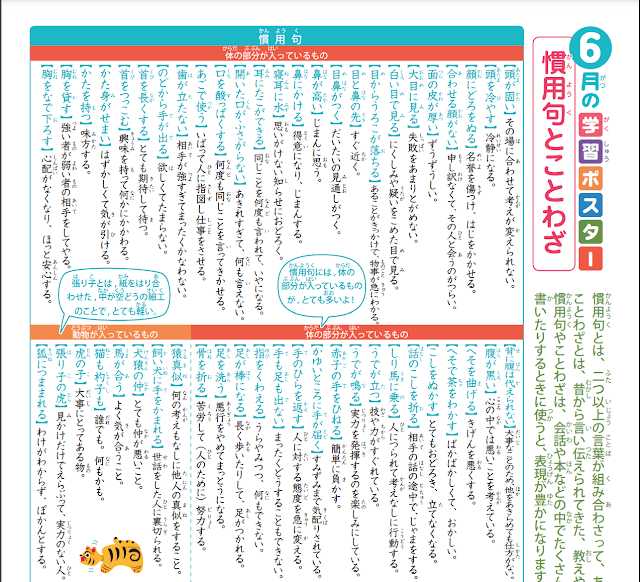 6月の学習ポスター
慣用句とことわざ
慣用句とは、二つ以上の言葉が組み合わさって、あ
ことわざとは、昔から言い伝えられてきた、教えや
慣用句やことわざは、会話や本などの中でたくさん
書いたりするときに使うと、表現が豊かになります
慣用句
体の部分が入っているもの
【頭が固い】その場に合わせて考えが変えられない。
【頭を冷やす】冷静になる。
【顔にどろをぬる】名誉を傷つけ、はじをかかせる。
【合わせる顔がない】申し訳なくて、その人と会うのがつらい。
【面の皮が厚い】ずうずうしい。
【大目に見る】失敗をあまりとがめない。
【白い目で見る】にくしみや疑いをこめた目で見る。
【目からうろこが落ちる】あることがきっかけで物事が急にわかる。
【目と鼻の先】すぐ近く。
【目鼻がつく】だいたいの見通しがつく。
【鼻が高い】じまんに思う。
【鼻にかける】得意になり、じまんする。
【寝耳に水】思いがけない知らせにおどろく。
【耳にたこができる】同じことを何度も言われて、いやになる。
【開いた口がふさがらない】あきれすぎて、何も言えない。
【口を酸っぱくする】何度も同じことを言ってきかせる。
【あごで使う】いばって人に指図し仕事をさせる。
【歯が立たない】相手が強すぎてまったくかなわない。
【のどから手が出る】欲しくてたまらない。
【首を長くする】とても期待して待つ。
【首をつっこむ】興味を持って何かにかかわる。
【かたを持つ】味方する。
【かた身がせまい】はずかしくて気が引ける。
【胸を貸す】強い者が弱い者の相手をしてやる。
【胸をなで下ろす】心配がなくなり、ほっと安心する。
慣用句には、体の
部分が入っているもの
が、とても多いよ!
張り子とは、紙をはり合
わせた、中が空どうの細工
のことで、とても軽い。
体の部分が入っているもの
【背に腹は代えられない】大事なことのため他をあきらめても仕方がない。
【腹が黒い】心の中では悪いことを考えている。
【へそを曲げる】きげんを悪くする。
【へそで茶をわかす】ばかばかしくて、おかしい。
【こしをぬかす】とてもおどろき、立てなくなる。
【話のこしを折る】相手の話の途中で、じゃまをする。
【しり馬に乗る】人につられて考えなしに行動する。
【うでが立つ】技や力がすぐれている。
【うでが鳴る】実力を発揮するのを楽しみにしている。
【赤子の手をひねる】簡単に負かす。
【かゆいところに手が届く】すみずみまで気配りされている。
【手のひらを返す】人に対する態度を急に変える。
【手も足も出ない】まったくどうすることもできない。
【指をくわえる】うらやみつつ、何もできない。
【足が棒になる】長く歩いたりして、足がつかれる。
【足を洗う】悪行をやめてまっとうになる。
【骨を折る】苦労して(人のために)努力する。
動物が入っているもの
【猿真似】何の考えもなしに他人の真似をすること。
【飼い犬に手をかまれる】世話をした人に裏切られる。
【犬猿の仲】とても仲が悪いこと。
【馬が合う】よく気が合うこと。
【猫も杓子も】誰でも。何もかも。
【虎の子】大事にとってある物。
【張り子の虎】見かけだけでえらぶって、実力のない人。
【狐につままれる】わけがわからず、ぽかんとする。